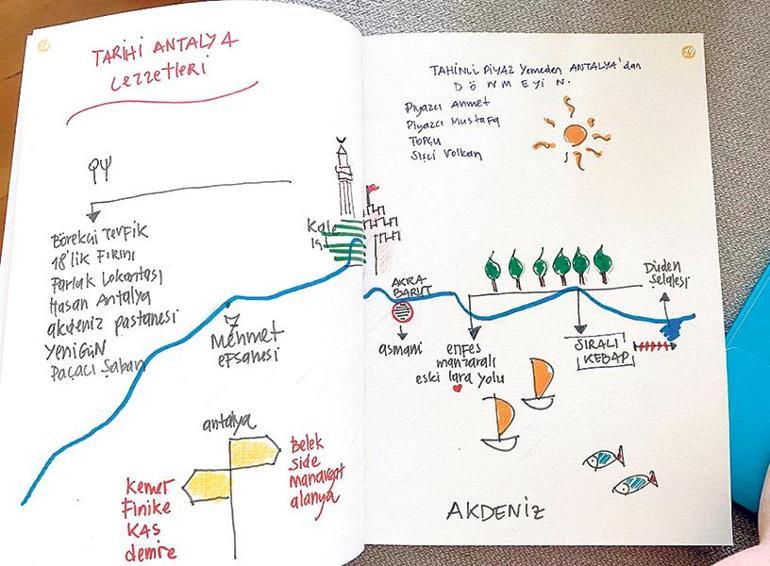 TARİHİ ANTALYA
LEZZETLERİ
Börekçi Tevfik
18'lik Fırını
Parlak Lokantası
Hasan Antalya
akdeniz pastanesi
YENİGÜN
Paçacı Şaban
Kale
içi
Mehmet
efsanesi
antalya
Belek
side
manavgat
alanya
Kemer
Finike
KAŞ
demre
TAHİNLİ PİYAZ yemeden ANTALYA'dan
DÖNMEYİN.
Piyazcı Ahmet
Piyazcı Mustafa
TOPÇU
Şişçi Volkan
AKRA
BARUT
asmani
enfes
manzaralı
eski lara yolu
SIRALI
KEBAP
Düden
Şelalesi
AKDENİZ